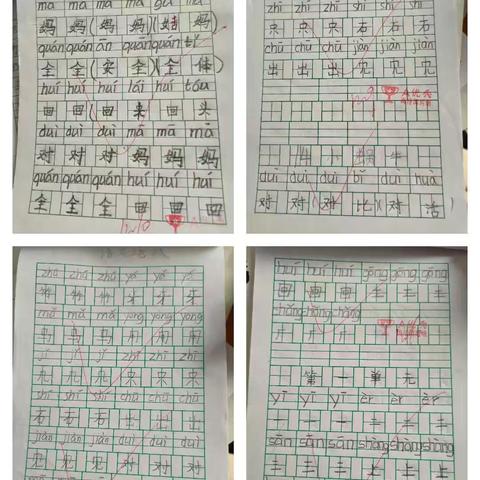 mā mā mā mā gū mā
妈 妈 (妈 妈)(姑 妈)
quán quán ān quán quán tǐ
全 (安 全)(全 体)
huí huí huí lái huí tóu
回 (回 来 回 头
duì duì duì mā mā mā
对 对 对 妈 妈 妈
quán quán quán huí huí huí
全 全 全 回 回 回
zhī zhī zhī shí shí shí
只 只 只 石 石 石
chū chū chū jiàn jiàn jiàn
出 出 出 见 见 见
牛 小 蜗 牛
duì duì duì bǐ duì huà
对 对 (对 比)(对 话)
zhú zhú zhú yá yá yá
竹 竹 竹 牙 牙 牙
mǎ mǎ mǎ yòng yòng yòng
马 马 马 用 用 用
jǐ jǐ jǐ zhī zhī zhī
几 几 几 只 只 只
shí shí shí chū chū chū
石 石 石 出 出 出
jiàn jiàn jiàn duì duì duì
见 见 见 对 对 对
huí huí huí gōng gōng gōng
第 一 单 元
yī yī yī èr èr èr
sān sān sān shàng shàng shàng
三 三 三 上 上 上